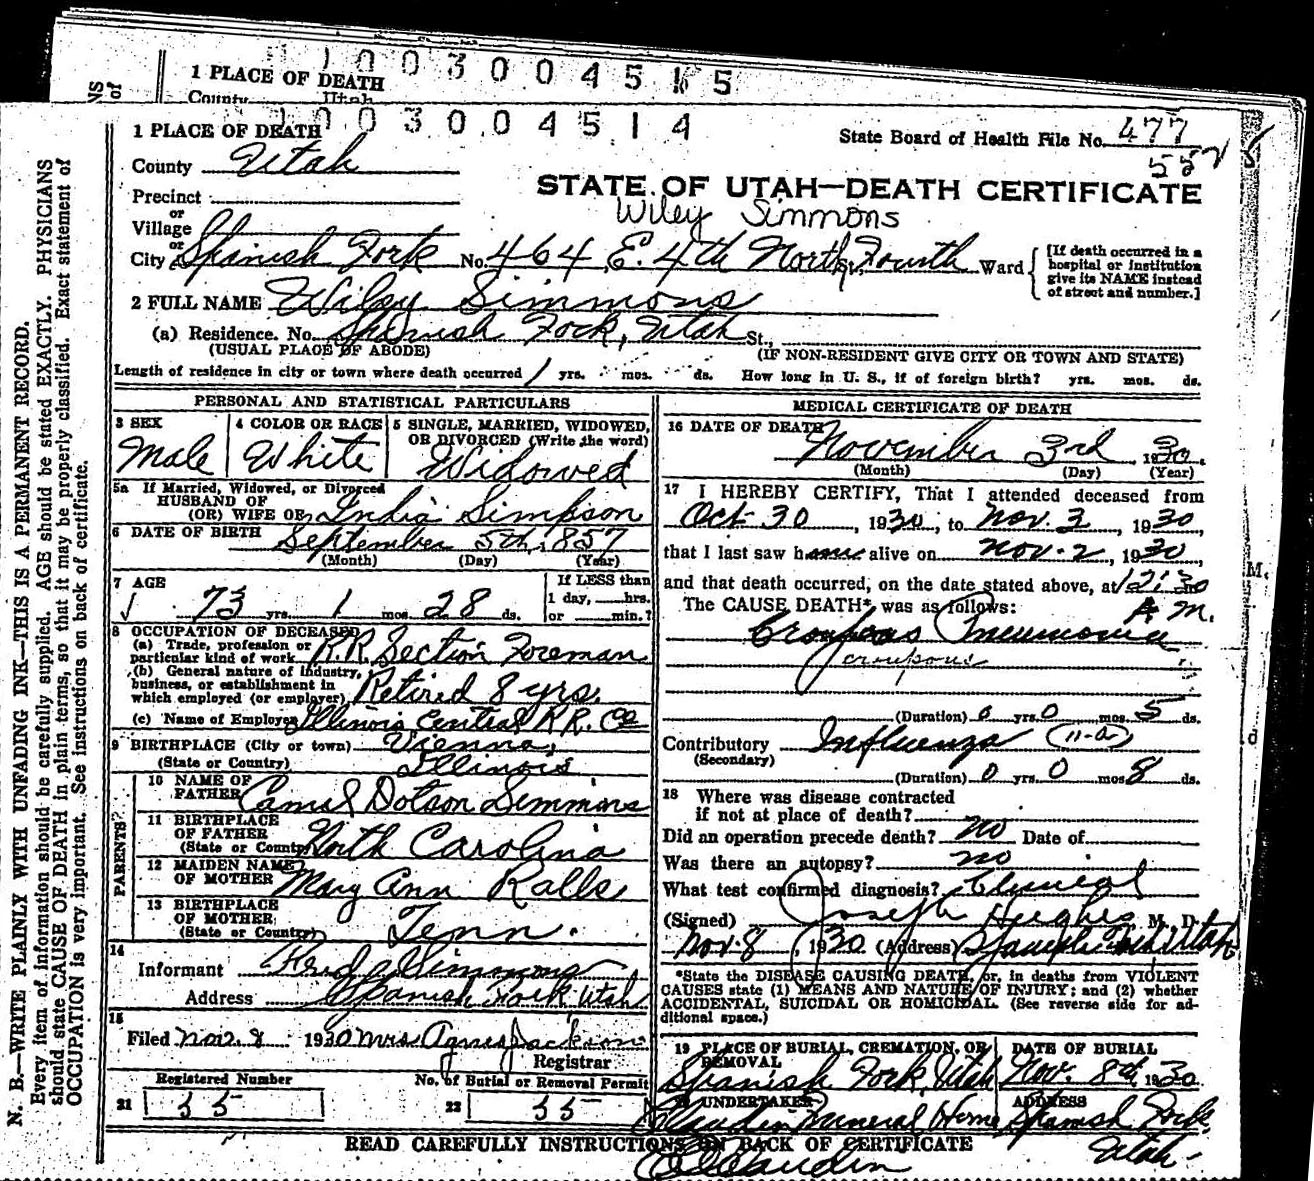 1 0 0 3 0 0 4 5 1 5
1 PLACE OF DEATH
County Utah
1 0 0 3 0 0 4 5 1 4
1 PLACE OF DEATH
State Board of Health File No. 477
557
County Utah
STATE OF UTAH—DEATH CERTIFICATE
Precinct
Wiley Simmons
or
Village
or
City Spanish Fork No. 464 E. 4th North St. Fourth Ward
[If death occurred in a hospital or institution give its NAME instead of street and number.]
2 FULL NAME Wiley Simmons
(a) Residence. No. Spanish Fork, Utah St.,
(USUAL PLACE OF ABODE) (IF NON-RESIDENT GIVE CITY OR TOWN AND STATE)
Length of residence in city or town where death occurred 1 yrs. mos. ds. How long in U. S., if of foreign birth? yrs. mos. ds.
PERSONAL AND STATISTICAL PARTICULARS
3 SEX Male
4 COLOR OR RACE White
5 SINGLE, MARRIED, WIDOWED, OR DIVORCED (Write the word) Widowed
5a If Married, Widowed, or Divorced
HUSBAND OF
(OR) WIFE OF India Simpson
6 DATE OF BIRTH September 5th, 1857
(Month) (Day) (Year)
7 AGE 73 yrs. 1 mos. 28 ds.
If LESS than
1 day, hrs.
or min.?
8 OCCUPATION OF DECEASED
(a) Trade, profession or
particular kind of work R.R. Section Foreman
(b) General nature of industry,
business, or establishment in
which employed (or employer) Retired 8 yrs.
(c) Name of Employer Illinois Central R.R. Co
9 BIRTHPLACE (City or town) Vienna,
(State or Country) Illinois
PARENTS
10 NAME OF
FATHER Dotson Simmons
11 BIRTHPLACE
OF FATHER
(State or Country) North Carolina
12 MAIDEN NAME
OF MOTHER Mary Ann Ralls
13 BIRTHPLACE
OF MOTHER
(State or Country) Tenn.
14
Informant Simmons
Address Spanish Fork Utah
15
Filed Nov. 8 1930 Mrs Agnes Jackson
Registrar
Registered Number
21 55
No. of Burial or Removal Permit
22 55
MEDICAL CERTIFICATE OF DEATH
16 DATE OF DEATH November 3rd 1930.
(Month) (Day) (Year)
17 I HEREBY CERTIFY, That I attended deceased from
Oct 30, 1930, to Nov. 3, 1930
that I last saw him alive on Nov. 2, 1930,
and that death occurred, on the date stated above, at 12:30
A M.
The CAUSE DEATH* was as follows:
Croupous Pneumonia
croupous
(Duration) 0 yrs. 0 mos. 5 ds.
Contributory Influenza (11-a)
(Secondary)
(Duration) 0 yrs. 0 mos 8 ds.
18 Where was disease contracted
if not at place of death?
Did an operation precede death? no Date of
Was there an autopsy? no
What test confirmed diagnosis? Clinical
(Signed) Joseph Hughes M. D.
Nov. 8, 1930 (Address) Spanish Fork Utah
*State the DISEASE CAUSING DEATH, or, in deaths from VIOLENT
CAUSES state (1) MEANS AND NATURE OF INJURY; and (2) whether
ACCIDENTAL, SUICIDAL OR HOMICIDAL. (See reverse side for additional space.)
19 PLACE OF BURIAL, CREMATION, OR REMOVAL
Spanish Fork, Utah
DATE OF BURIAL
Nov. 8th 1930
20 UNDERTAKER
Claudin Funeral Home
Claudin
ADDRESS
Spanish Fork
Utah
READ CAREFULLY INSTRUCTIONS ON BACK OF CERTIFICATE
N. B.—WRITE PLAINLY WITH UNFADING INK—THIS IS A PERMANENT RECORD.
Every item of information should be carefully supplied. AGE should be stated EXACTLY. PHYSICIANS
should state CAUSE OF DEATH in plain terms, so that it may be properly classified. Exact statement of
OCCUPATION is very important. See instructions on back of certificate.